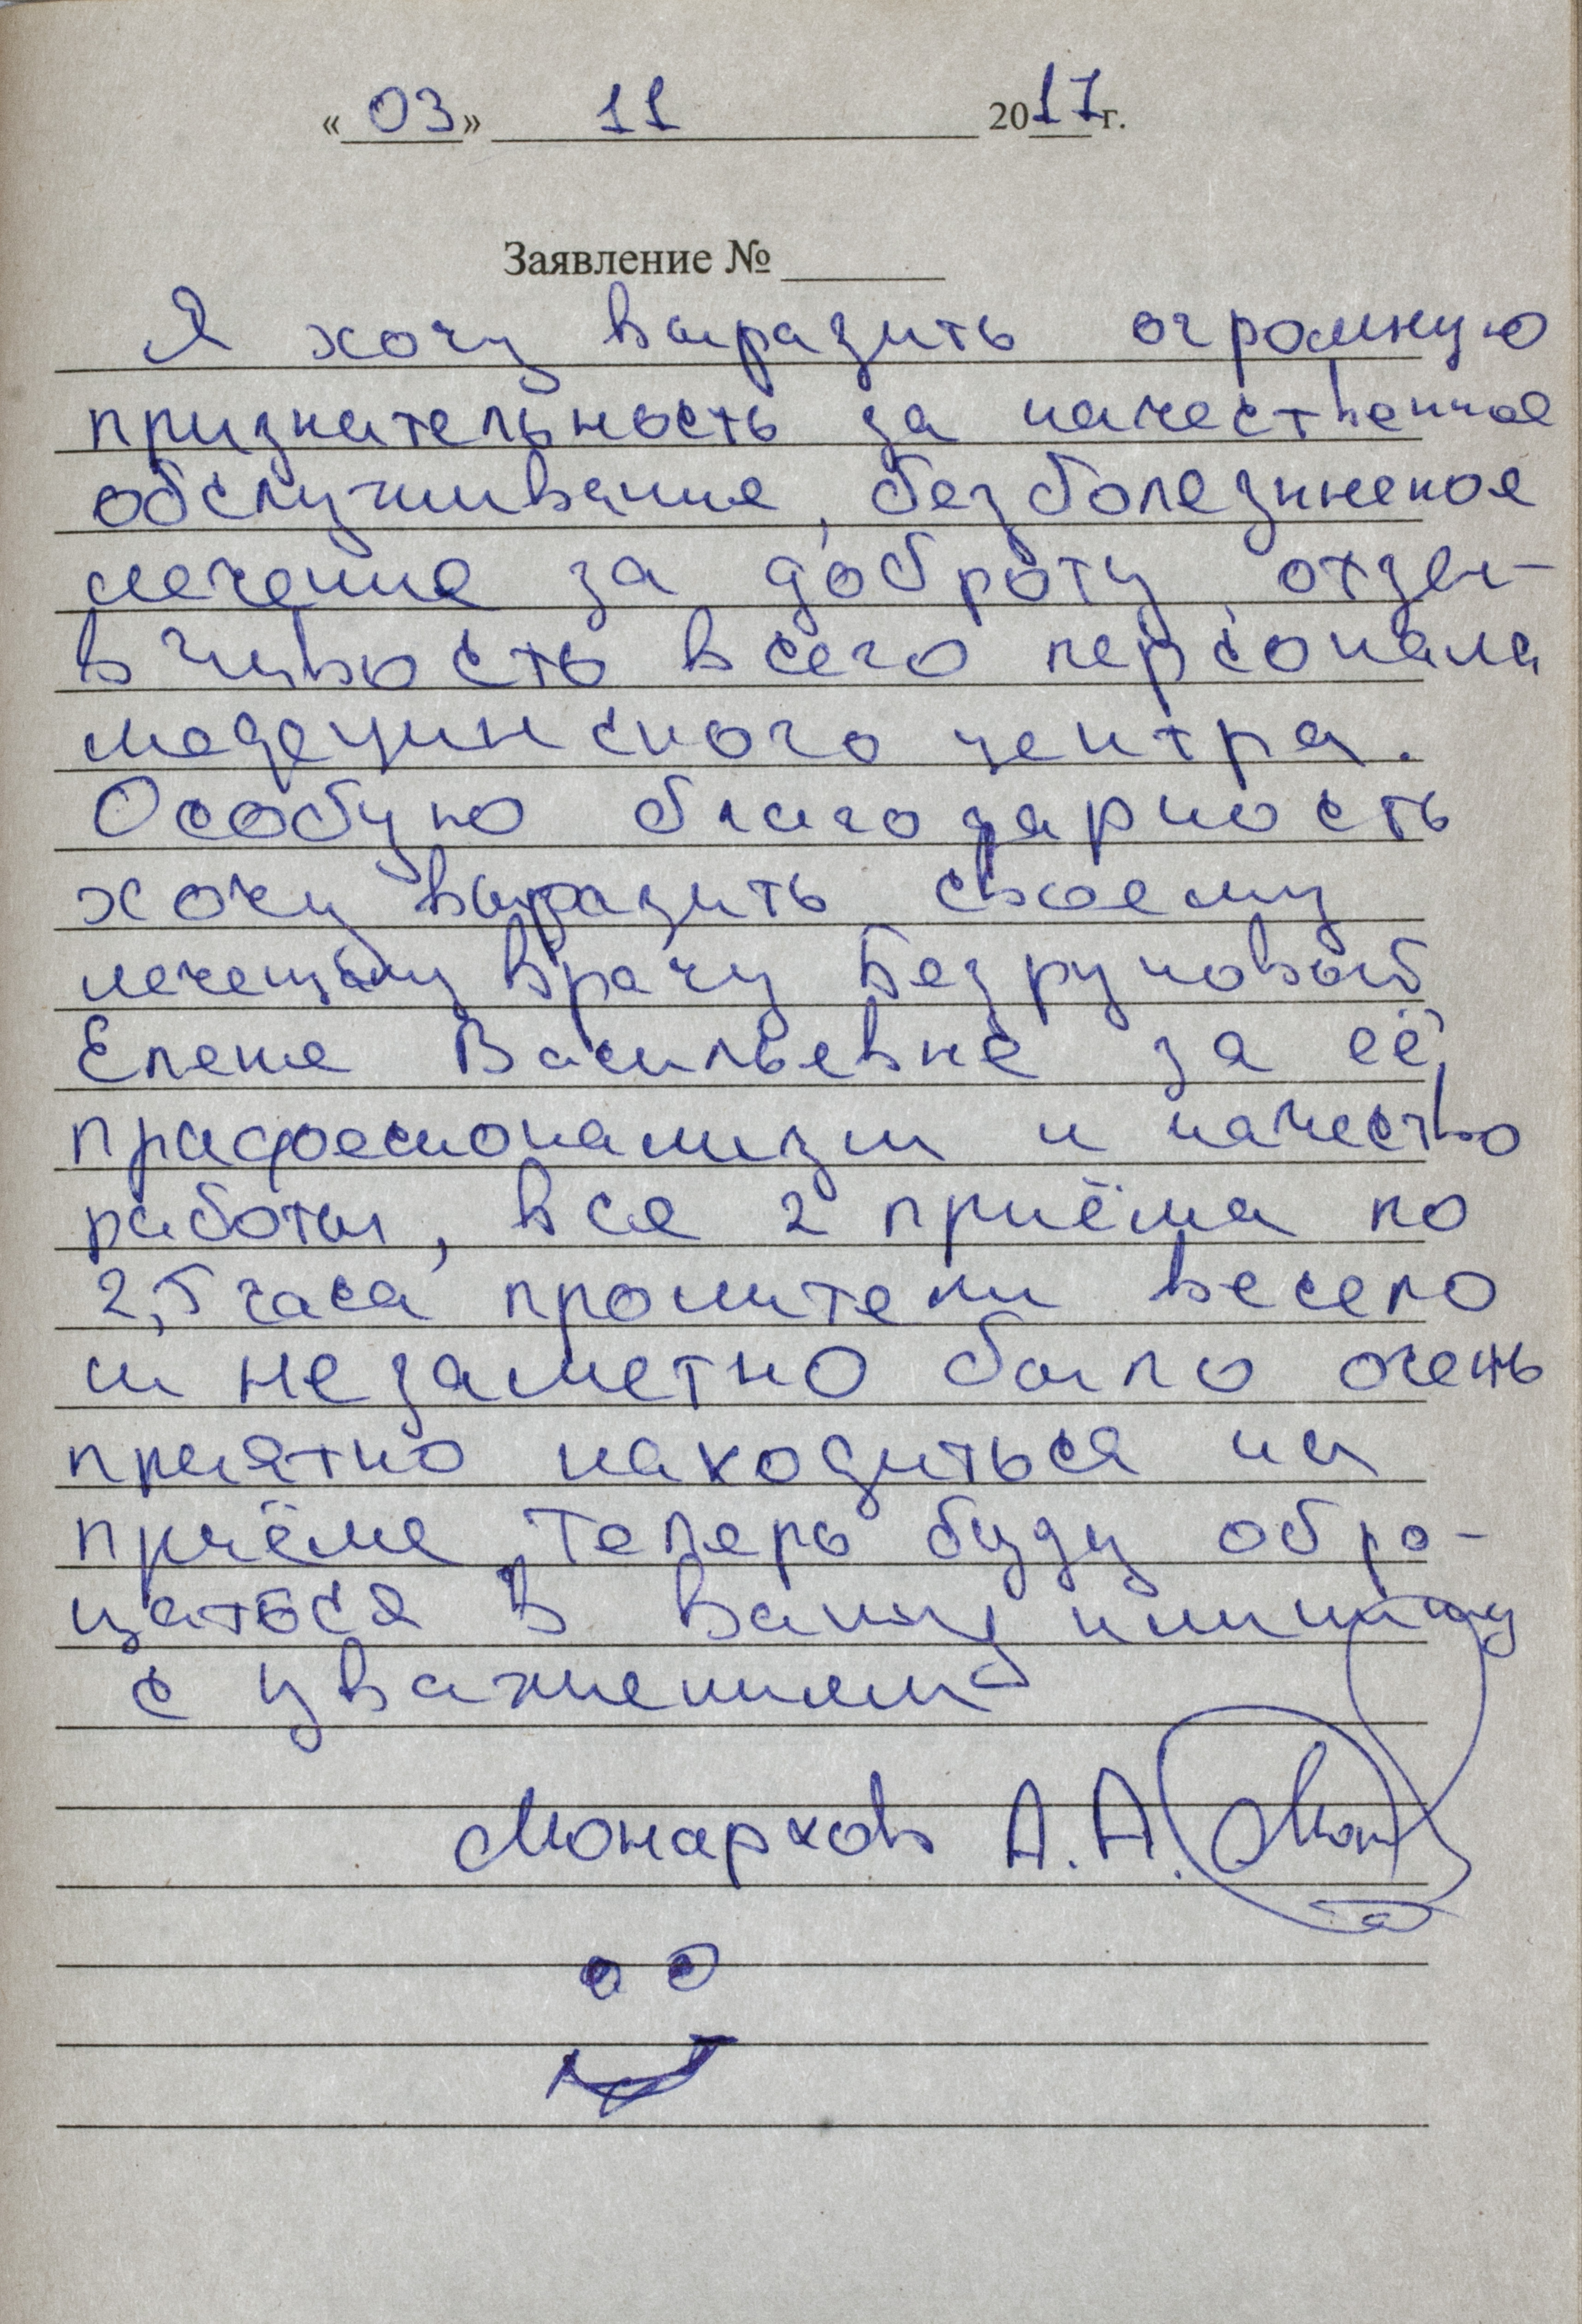 « 03 » 11 2017 г.
Заявление №
Я хочу выразить огромную
признательность за качественное
обслуживание, безболезненное
лечение за доброту, отзы-
вчивость всего персонала
медецинского центра.
Особую благодарность
хочу выразить своему
лечещему врачу Безруковой
Елене Васильевне за её
професионализм и качество
работы, все 2 приёма по
2,5 часа пролители весело
и незаметно было очень
приятно находиться на
приёме, теперь буду обра-
щаться в Вашу клинику
с уважением
Монархов А.А.